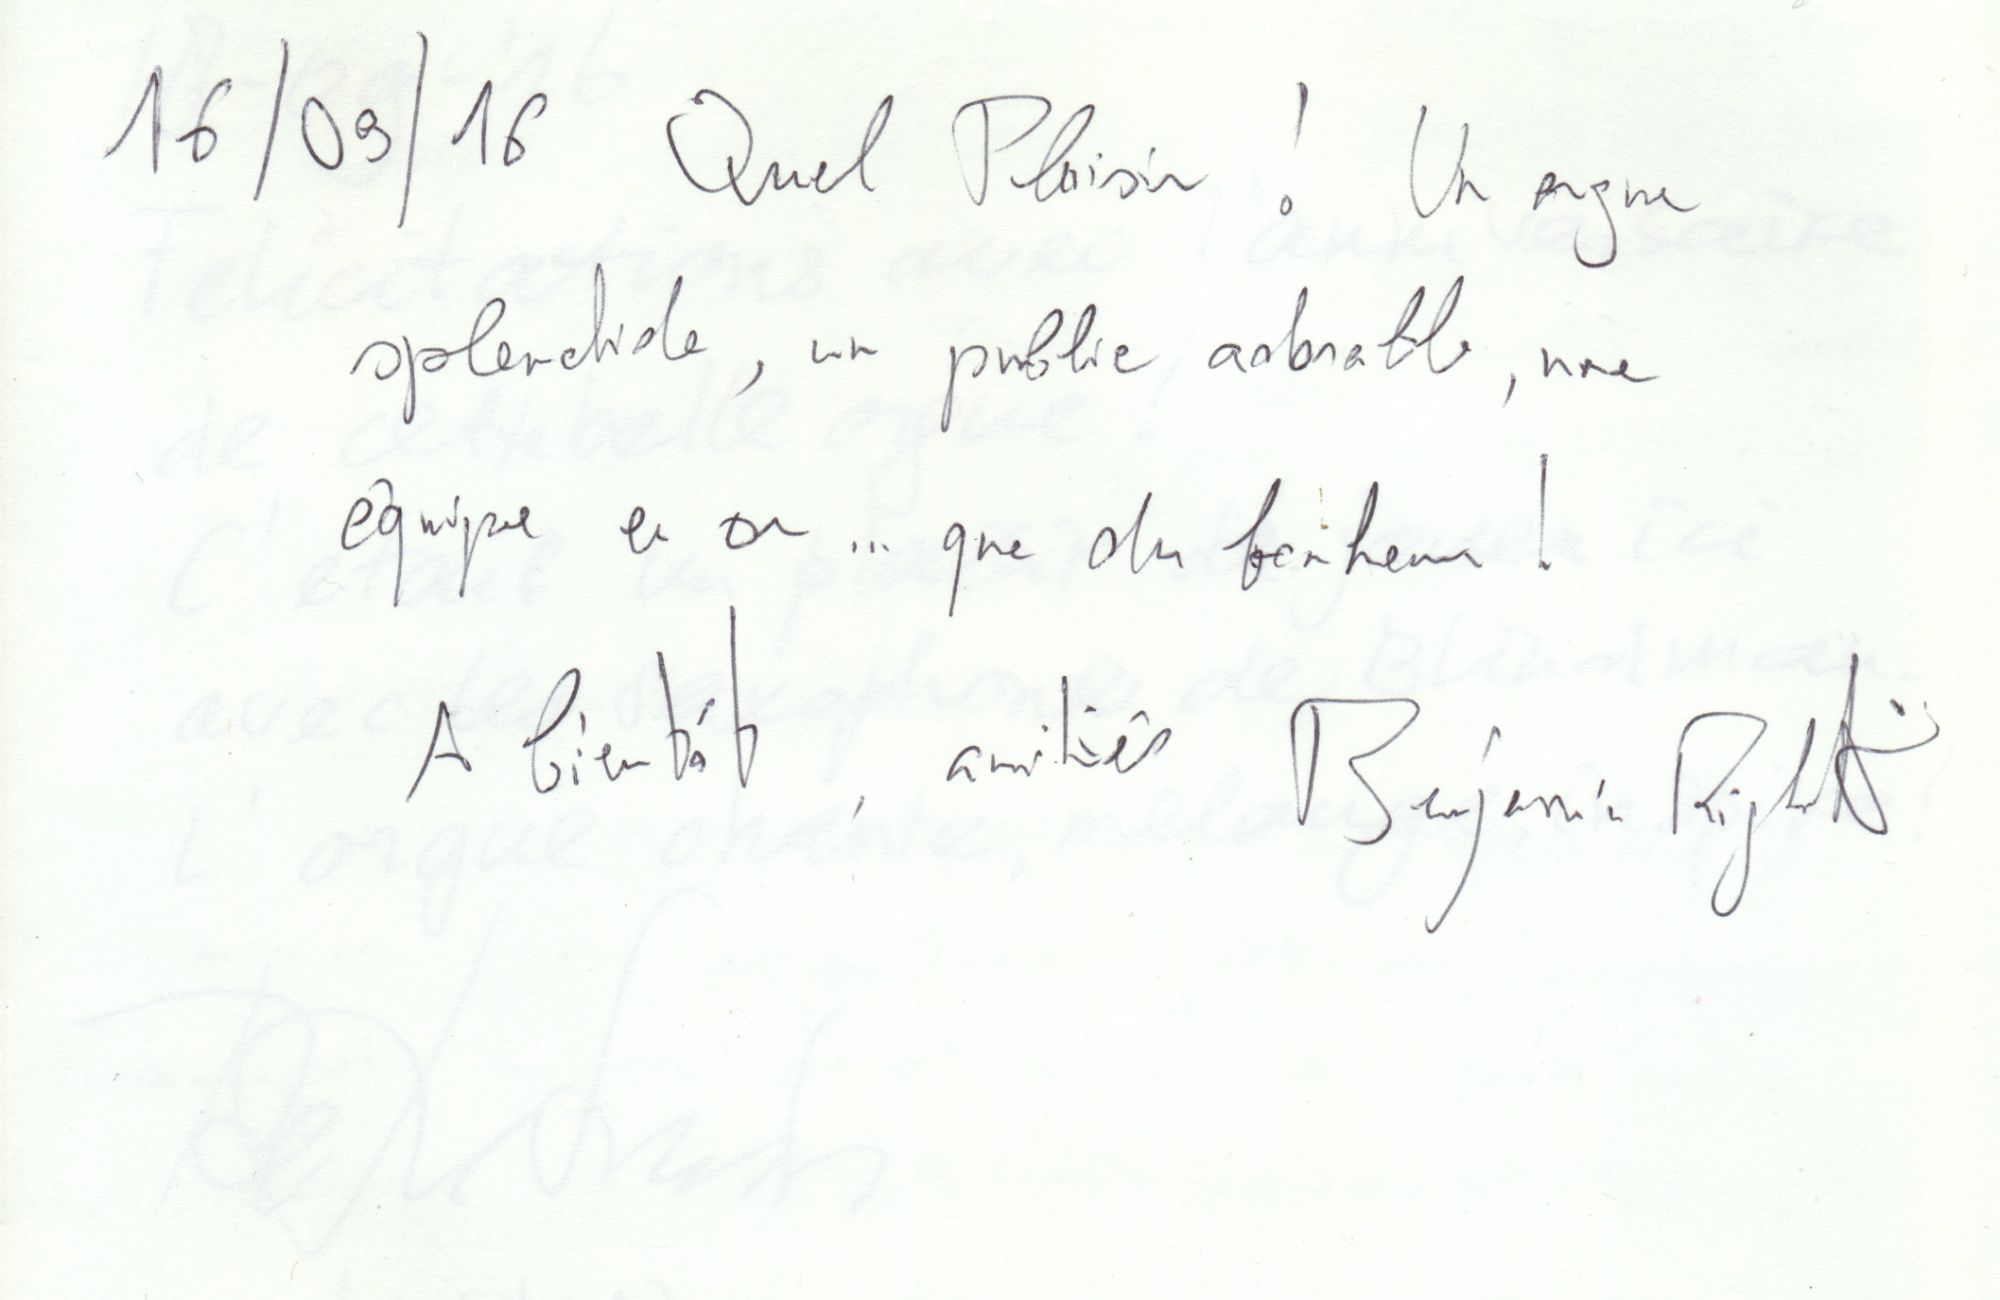 16/09/16 Quel Plaisir ! Un orgue
splendide, un public adorable, une
équipe en or ... que du bonheur !
A bientôt, amitiés Benjamin Righetti